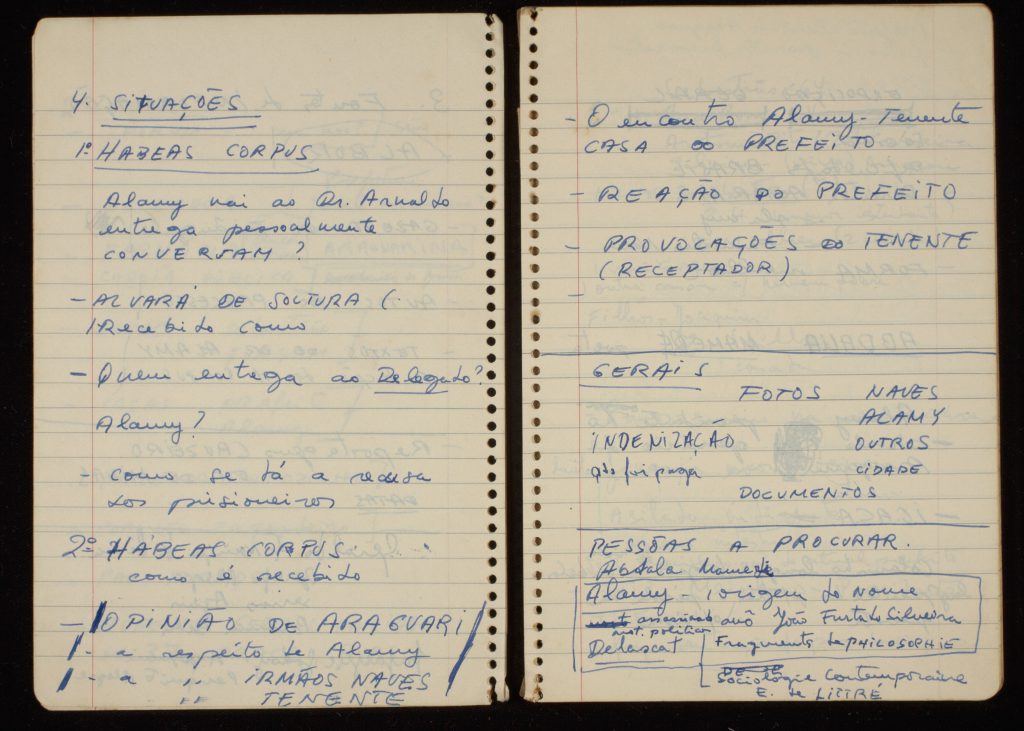 4. SITUAÇÕES
1º HABEAS CORPUS
Alamy vai ao Dr. Arnaldo
entrega pessoalmente
CONVERSAM ?
- ALVARÁ DE SOLTURA (
Recebido como
- Quem entrega ao Delegado?
Alamy?
- como se dá a recusa
dos prisioneiros
2º HÁBEAS CORPUS
como é recebido
- OPINIÃO DE ARAGUARI
- a respeito de Alamy
- a " IRMÃOS NAVES
" TENENTE
- O encontro Alamy-Tenente
CASA DO PREFEITO
- REAÇÃO DO PREFEITO
- PROVOCAÇÕES do TENENTE
(RECEPTADOR)
-
GERAIS
FOTOS NAVES
ALAMY
INDENIZAÇÃO OUTROS
qdo foi paga CIDADE
DOCUMENTOS
PESSÔAS A PROCURAR.
Abdala Mamede
Alamy - origem do nome
assassinado avô João Furtado Silveira
mot. politico
Delascat Fragments de PHILOSOPHIE
Sociologie Contemporaine
E. de LITTRÉ